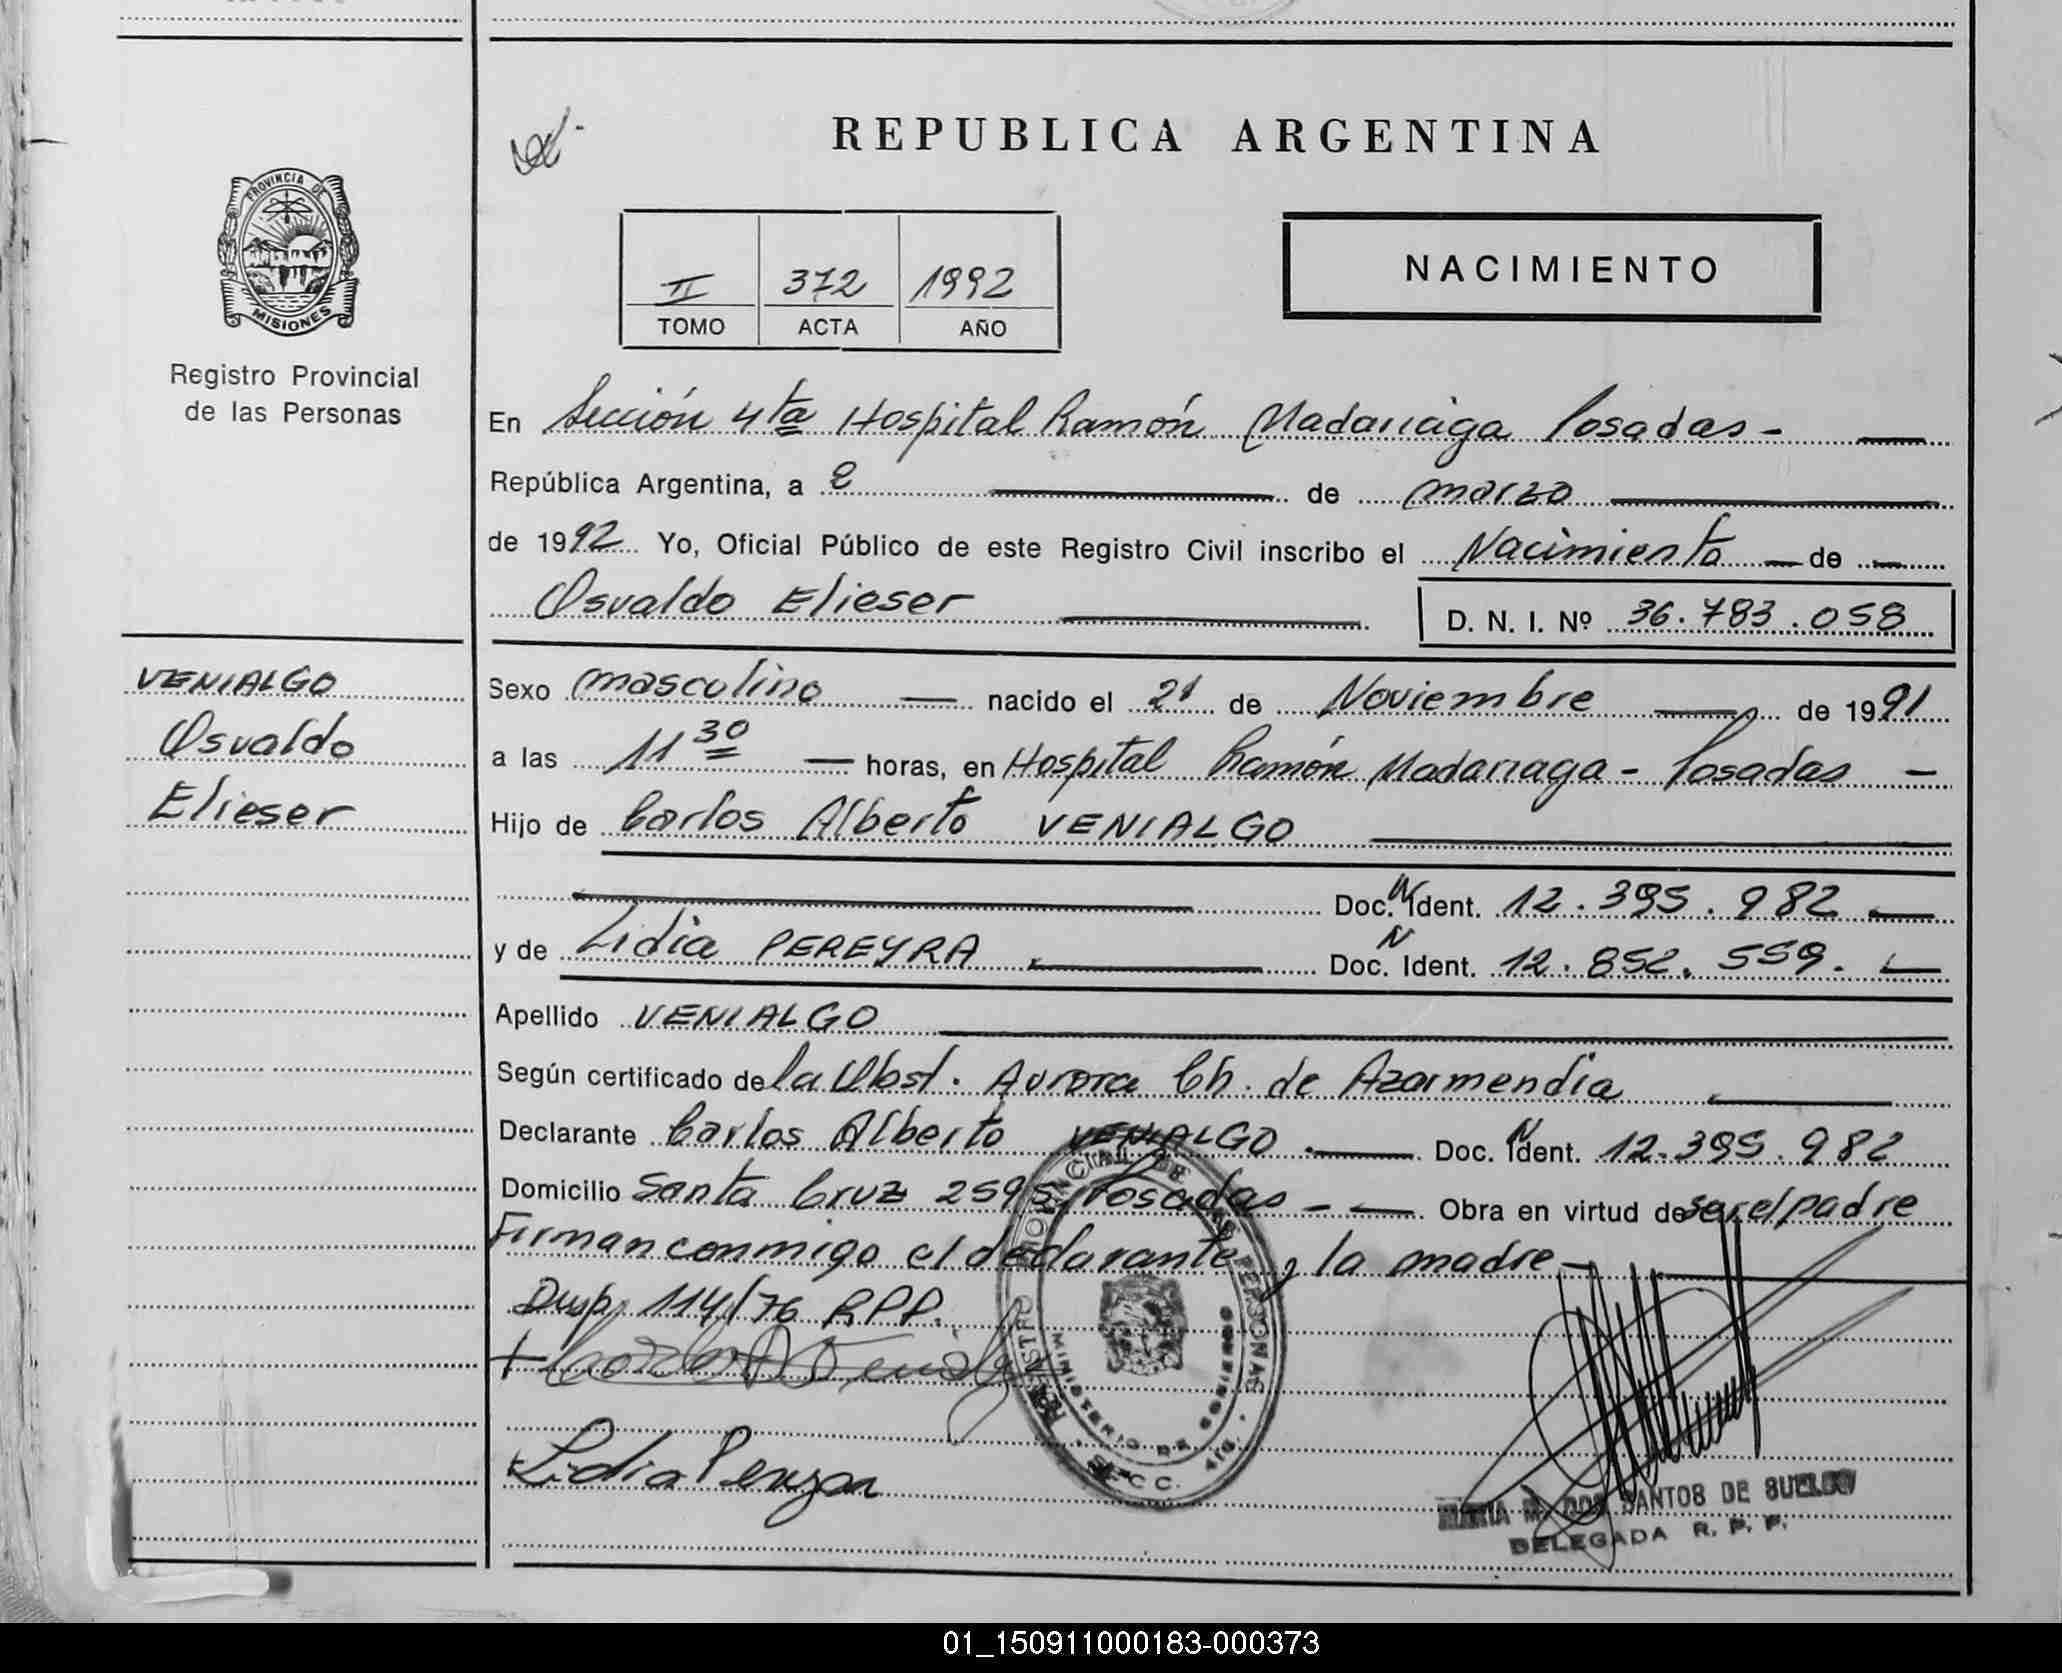 REPUBLICA ARGENTINA
PROVINCIA DE
MISIONES
Registro Provincial
de las Personas
II 372 1992
TOMO ACTA AÑO
NACIMIENTO
En Sección 4ta Hospital Ramón Madariaga Posadas -
República Argentina, a 2 de marzo
de 1992 Yo, Oficial Público de este Registro Civil inscribo el Nacimiento de
Osvaldo Elieser D. N. I. Nº 36.783.058
VENIALGO
Osvaldo
Elieser
Sexo masculino nacido el 21 de Noviembre de 1991
a las 11 30 horas, en Hospital Ramón Madariaga - Posadas -
Hijo de Carlos Alberto VENIALGO
Doc. N Ident. 12.395.982
y de Lidia PEREYRA Doc. N Ident. 12.852.559.
Apellido VENIALGO
Según certificado de la Obst. Aurora Ch. de Azarmendia
Declarante Carlos Alberto VENIALGO. Doc. N Ident. 12.395.982
Domicilio Santa Cruz 2595 Posadas - Obra en virtud de ser el padre
Firman conmigo el declarante y la madre
Disp. 114/76 RPP.
REGISTRO PROVINCIAL DE LAS PERSONAS
MINISTERIO DE GOBIERNO
Lidia Pereyra
MARIA M. DOS SANTOS DE SUELDO
DELEGADA R. P. P.
01_150911000183-000373